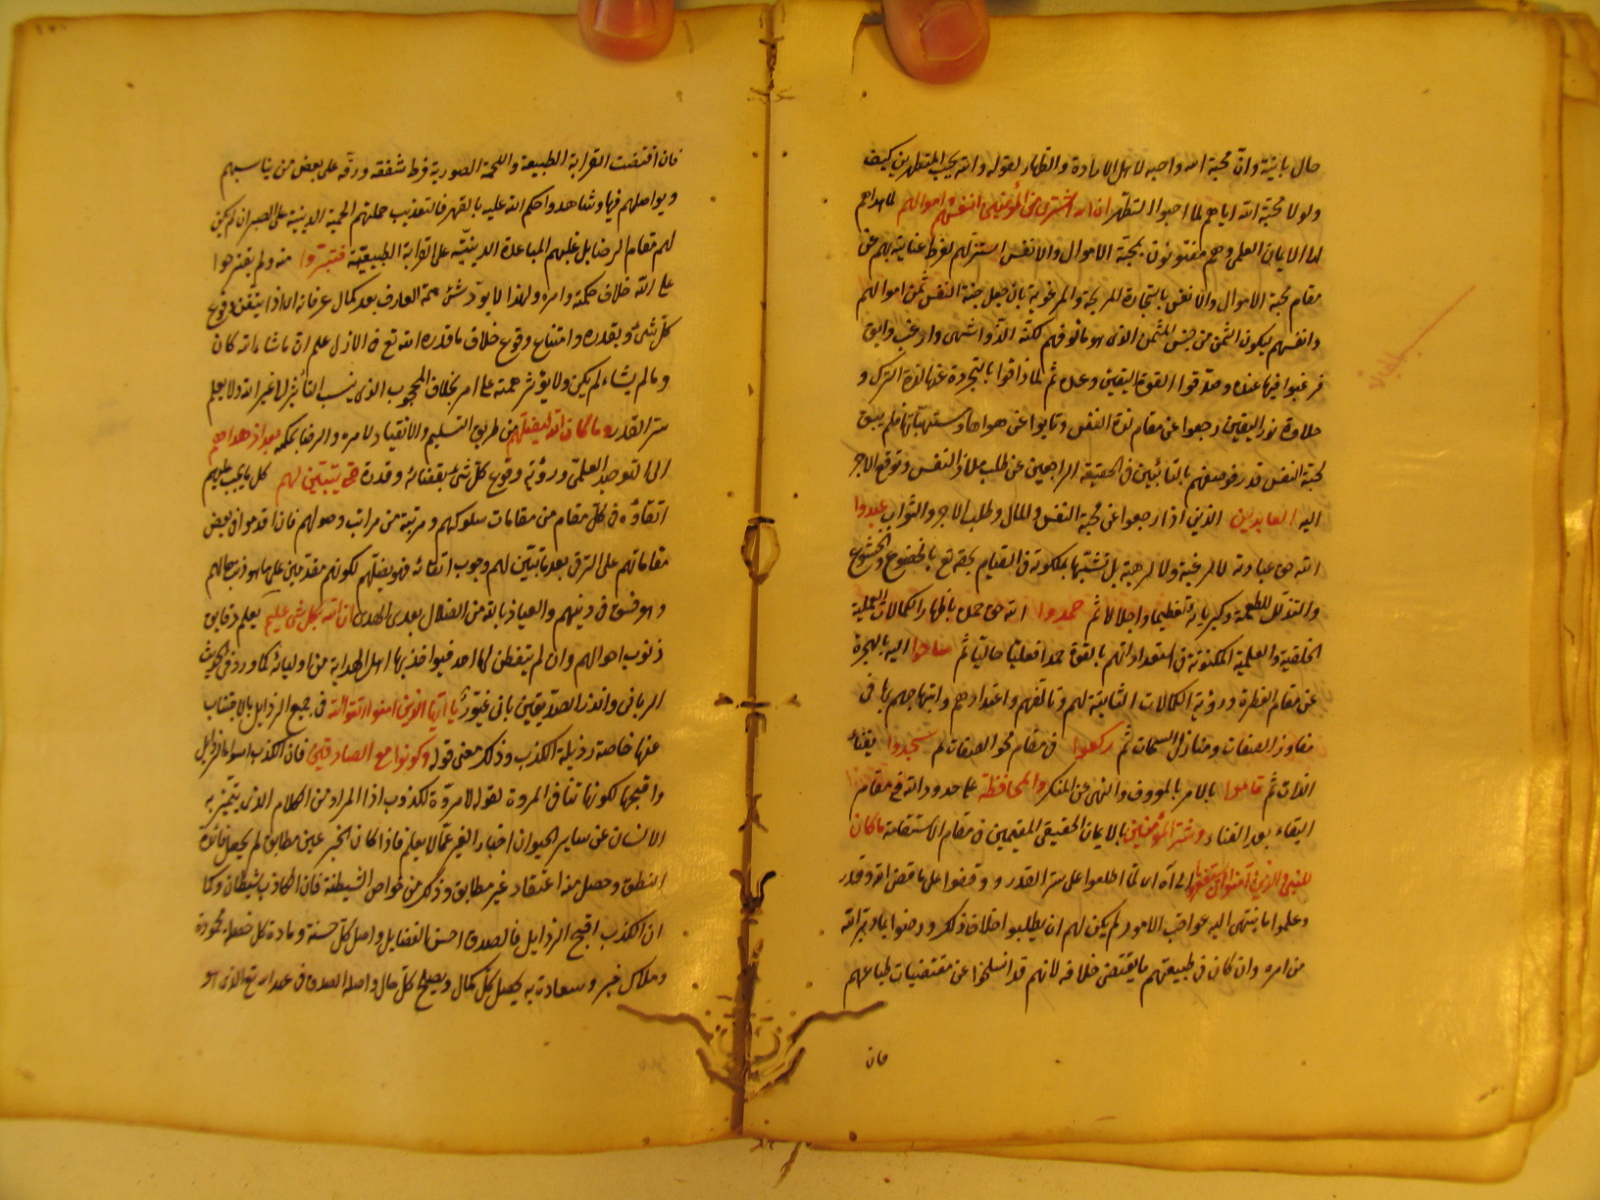 حال بانية وان محبة الله واجبه لاهل الارادة والطهار لقوله والله يحب المتطهرين كيف
ولولا محبة الله اياهم لما احبوا التطهر ان الله اشترى من المؤمنين انفسهم واموالهم لما هداهم
الى الايمان العلمي وهم مفتونون بمحبة الاموال والانفس استنزلهم لفرط عنايته بهم عن
مقام محبة الاموال والانفس بالتجارة المربحة والمرغوبة بان جعل جنة النفس ثمن اموالهم
وانفسهم ليكون الثمن من جنس المثمن الذي هو مألوفهم لكنه الذ واشهى وارغب وابقى
فرغبوا فيما عنده وصدقوا لقوة اليقين وعده ثم لما ذاقوا بالتجرد عنها لذة الترك و
حلاوة نور اليقين رجعوا عن مقام لذة النفس وتابوا عن هواها ومشتهياتها فلم يبق
لجنة النفس قدر فوصفهم بالتائبين في الحقيقة الراجعين عن طلب ملاذ النفس وتوقع الاجر
اليه العابدين الذين اذا رجعوا عن محبة النفس والمال وطلب الاجر والثواب عبدوا
الله حق عبادته لا لرغبة ولا لرهبة بل تشبها بملكوته في القيام بحقه تع بالخضوع والخشوع
والتذلل لعظمته وكبريائه تعظيما واجلالا ثم حمدوا الله حق حمده باظهار الكمالات العملية
الخلقية والعلمية المكنونة في استعداداتهم بالقوة حمدا فعليا حاليا ثم ساحوا اليه بالهجرة
عن مقام الفطرة ورؤية الكمالات الثابتة لهم وتألفهم واعتدادهم وابتهاجهم بها في
مفاوز الصفات ومنازل السبحات ثم ركعوا في مقام محو الصفات ثم سجدوا بفناء
الذات ثم قاموا بالامر بالمعروف والنهي عن المنكر والمحافظة على حدود الله في مقام
البقاء بعد الفناء وبشر المؤمنين بالايمان الحقيقي المقيمين في مقام الاستقامة ما كان
للنبي والذين آمنوا ان يستغفروا الى آه اي لما اطلعوا على سر القدر ووقفوا على ما قضى الله وقدر
وعلموا ما ينتهي اليه عواقب الامور لم يكن لهم ان يطلبوا خلاف ذلك ورضوا بما دبر الله
من امره وان كان في طبيعتهم ما يقتضي خلافه لانهم قد انسلخوا عن مقتضيات طباعهم
فان
فان اقتضت القرابة الطبيعية واللحمة الصورية فرط شفقه ورقة على بعض من يناسبهم
ويواصلهم فيها وشاهدوا حكم الله عليه بالقهر والتعذيب حملتهم الحمية الدينية على الصبر ان لم يكن
لهم مقام الرضا بل غلبهم المباعدة الدينية على القرابة الطبيعية فتبرؤا منه ولم يقترحوا
على الله خلاف حكمه وامره ولهذا لا يؤثر شئ همة العارف بعد كمال عرفانه اي اذا تيقن وقوع
كل شئ بقدره وامتناع وقوع خلاف ما قدره الله تع في الازل علم ان ما شاء الله كان
وما لم يشاء لم يكن ولا يؤثر همته على امر بخلاف المحجوب الذي ينسب التأثير الى غير الله ولا يعلم
سر القدر وما كان الله ليضلهم عن طريق التسليم والانقياد لامره والرضا بحكمه بعد اذ هداهم
الى التوحيد العلمي ورؤية وقوع كل شئ بقضائه وقدره حتى يتبين لهم كل ما يجب عليهم
اتقاؤه في كل مقام من مقامات سلوكهم ومرتبة من مراتب وصولهم فاذا قدموا في بعض
مقاماتهم على الترقي بعد ما تبين لهم وجوب اتقائه فهو يضلهم لكونهم مقدمين على ما هو ذنب حالهم
وهو فسق في دينهم والعياذ بالله من الضلال بعد الهدى ان الله بكل شئ عليم يعلم دقايق
ذنوب احوالهم وان لم يتفطن لها احد فيؤاخذ بها اهل الهداية من اوليائه كما ورد في الحديث
الرباني وانذر الصديقين باني غيور يا ايها الذين امنوا اتقوا الله في جميع الرذايل بالاجتناب
عنها خاصة رذيلة الكذب وذلك معنى قوله وكونوا مع الصادقين فان الكذب اسوأ الرذايل
واقبحها لكونها تنافي المروة لقوله لا مروة لكذوب اذا المراد من الكلام الذي يتميز به
الانسان عن ساير الحيوان اخبار الغير عما لا يعلم فاذا كان الخبر غير مطابق لم يحصل فائدة
النطق وحصل منه اعتقاد غير مطابق وذلك من خواص الشيطنة فان الكاذب شيطان وكما
ان الكذب اقبح الرذايل فالصدق احسن الفضايل واصل كل حسنة ومادة كل خصلة محمودة
وملاك كل خير وسعادة به يحصل كل كمال ويصلح كل حال واصله الصدق في عهد الله تع الذي هو